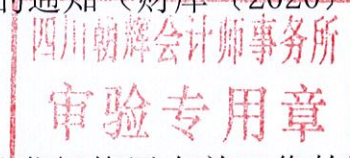 的通知(财库〔2020〕
四川朝辉会计师事务所
审验专用章